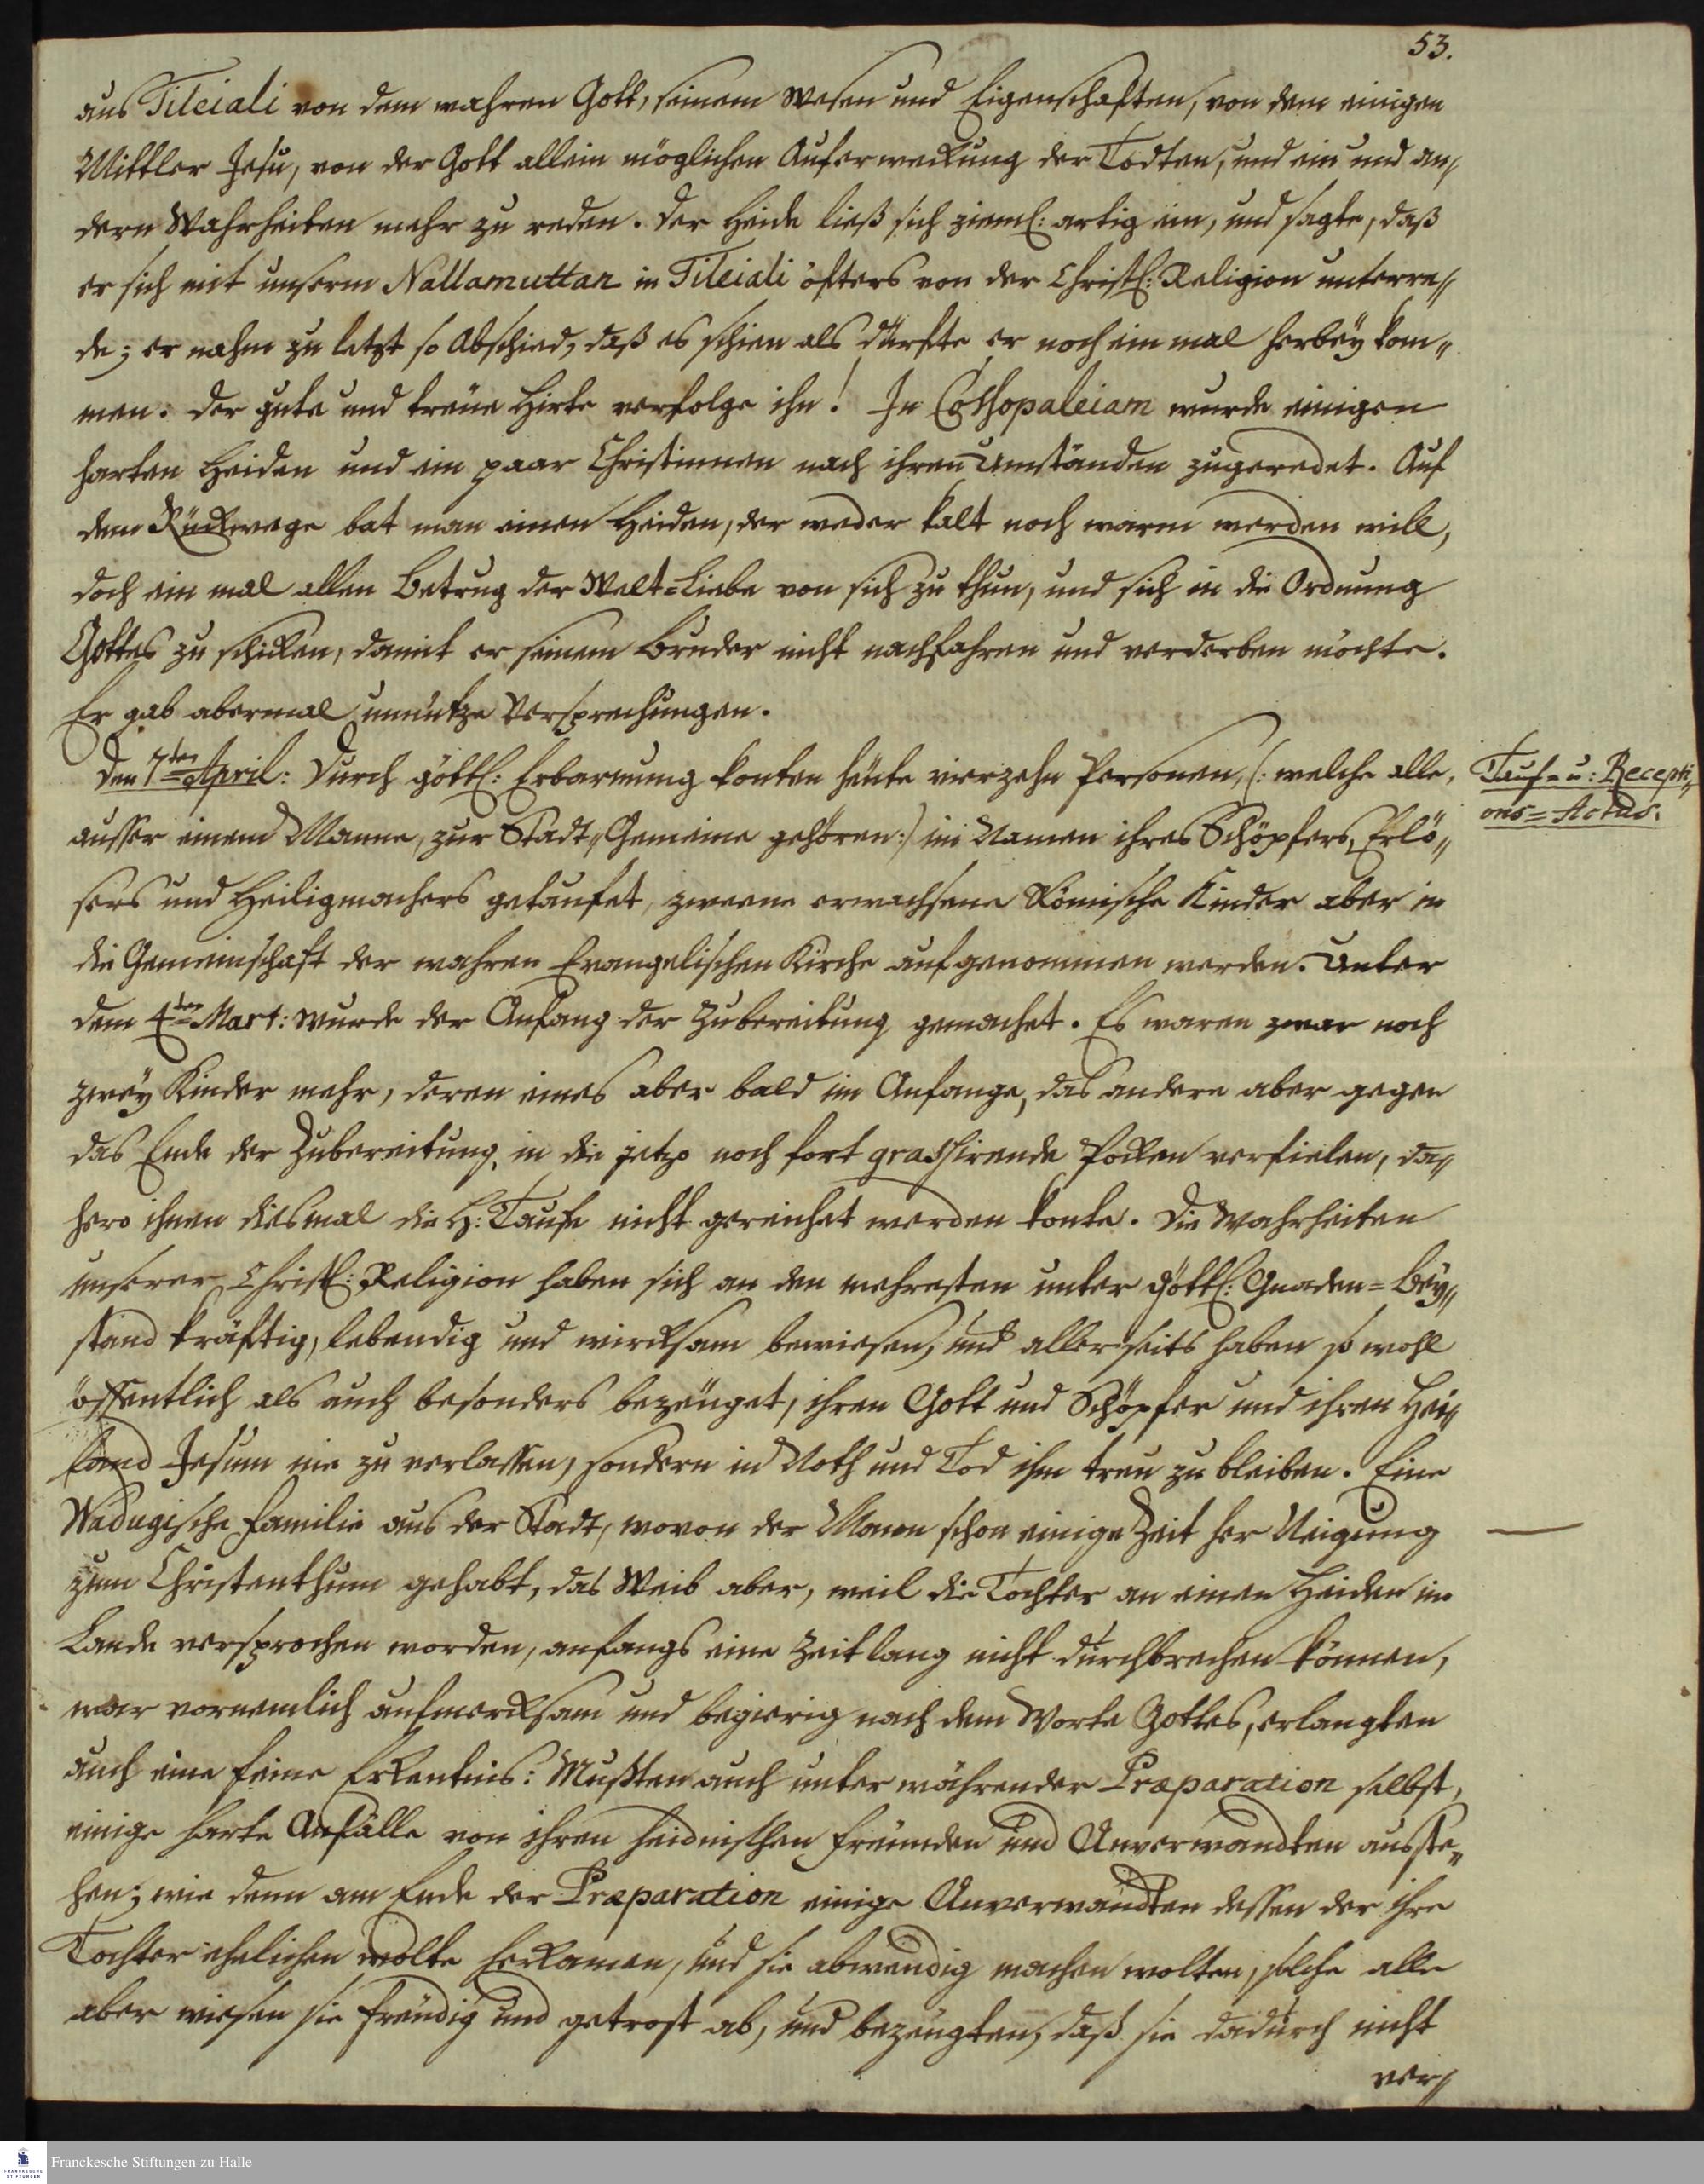 53.
aus Tileiali von dem wahren Gott, seinem Wesen und Eigenschaften, von dem einigen
Mittler Jesu, von der Gott allein möglichen Auferweckung der Todten, und ein und an„
dern Wahrheiten mehr zu reden. Der Heide ließ sich zieml: artig ein, und sagte, daß
er sich mit unserm Nallamuttan in Tileiali öfters von der Christl: Religion unterre„
de; er nahm zu letzt so Abschied, daß es schien als dürfte er noch ein mal herbey kom„
men. Der gute und treüe Hirte verfolge ihn! In Cossopaleiam wurde einigen
harten Heiden und ein paar Christinnen nach ihren Umständen zugeredet. Auf
dem Rückwege bat man einen Heiden, der weder kalt noch warm werden will,
doch ein mal allen Betrug der Welt=Liebe von sich zu thun, und sich in die Ordnung
Gottes zu schicken, damit er seinem Bruder nicht nachfahren und verderben möchte.
Er gab abermal unnütze Versprechungen.
Den 7ten April: Durch göttl: Erbarmung konten heüte vierzehn Personen, (: welche alle,
ausser einem Manne, zur Stadt„Gemeine gehören :) im Namen ihres Schöpfers, Erlö„
sers und Heiligmachers getaufet, zweene erwachsene Römische Kinder aber in
die Gemeinschaft der wahren Evangelischen Kirche aufgenommen werden. Unter
dem 4ten Mart: wurde der Anfang der Zubereitung gemachet. Es waren zwar noch
zwey Kinder mehr, deren eines aber bald im Anfange, das andere aber gegen
das Ende der Zubereitung, in die jetzo noch fort grassirende Pocken verfielen, da„
hero ihnen diesmal die H: Taufe nicht gereichet werden konte. Die Wahrheiten
unserer Christl: Religion haben sich an den mehresten unter göttl: Gnaden=Bey„
stand kräftig, lebendig und wircksam bewiesen, und allerseits haben so wohl
öffentlich als auch besonders bezeüget, ihren Gott und Schöpfer und ihren Hei„
land Jesum nie zu verlassen, sondern in Noth und Tod ihm treu zu bleiben. Eine
Wadugische Familie aus der Stadt, wovon der Mann schon einige Zeit her Neigung
zum Christenthum gehabt, das Weib aber, weil die Tochter an einen Heiden im
Lande versprochen worden, anfangs eine Zeitlang nicht durchbrechen können,
war vornemlich aufmercksam und begierig nach dem Worte Gottes, erlangten
auch eine feine Erkentnis: Mußten auch unter währender Præparation selbst,
einige harte Anfälle von ihren heidnischen Freünden und Anverwandten ausste„
hen; wie denn am Ende der Præparation einige Anverwandten dessen der ihre
Tochter ehelichen wolte herkamen, und sie abwendig machen wolten, solche alle
aber wiesen sie freüdig und getrost ab, und bezeügten, daß sie dadurch nicht
ver„
Tauf= u: Recepti„
ons=Actus.
Franckesche Stiftungen zu Halle